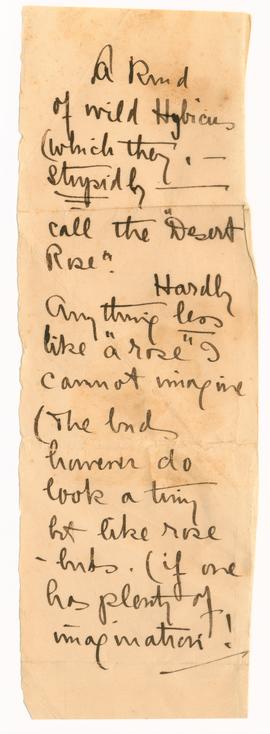 A Kind
of wild Hybicus
(which they , —
stupidly ——
call the "Desert
Rose".
Hardly
Anything less
like "a rose" I
cannot imagine
(The buds
however do
look a tiny
bit like rose
-buds. (if one
has plenty of
imagination!